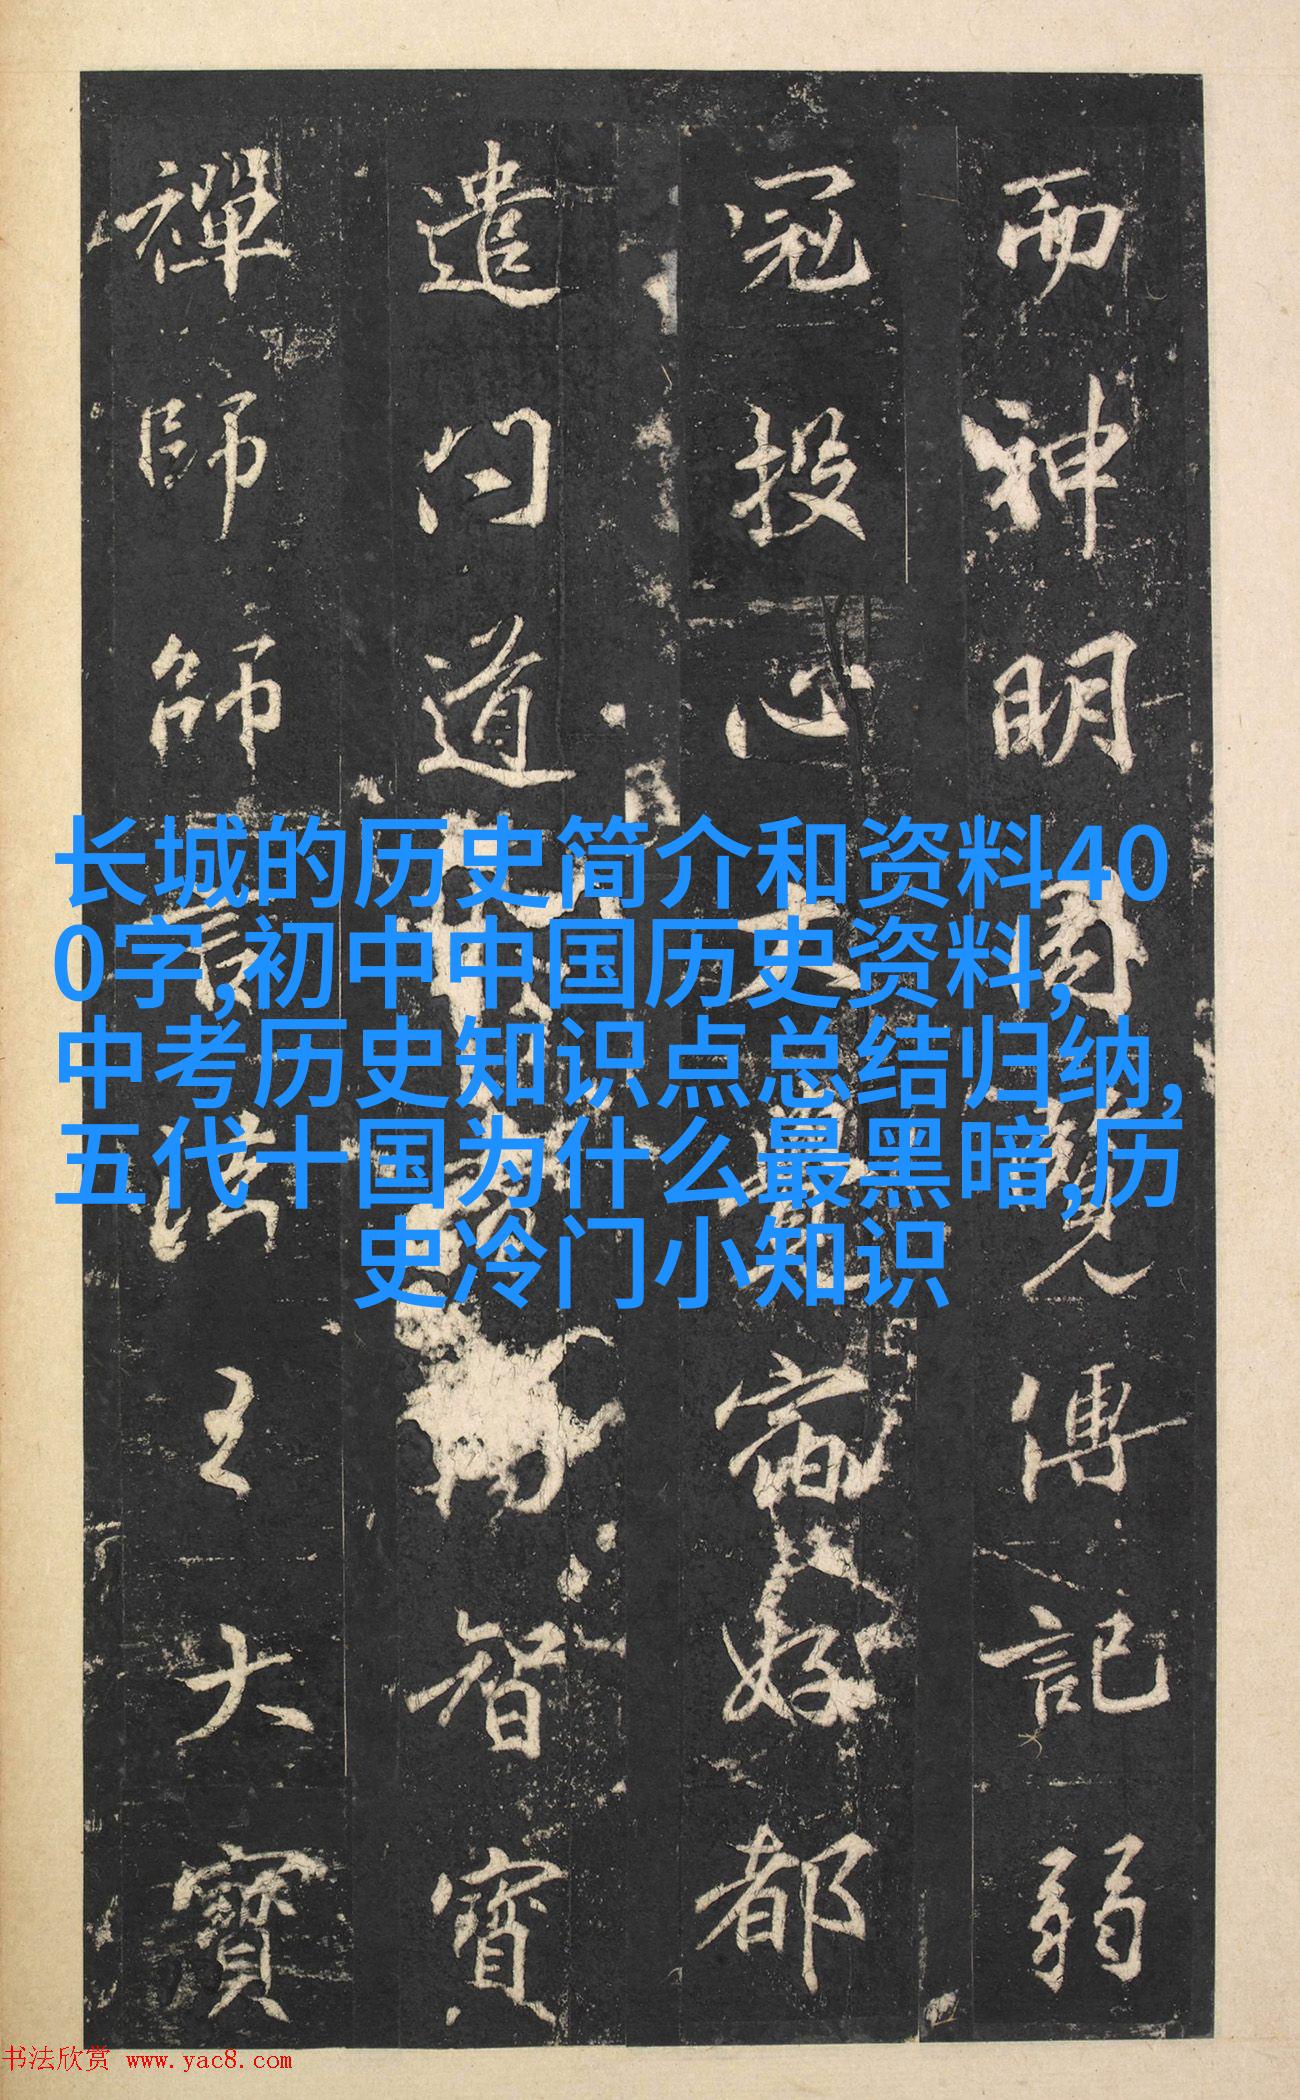 长城的历史简介和资料40
0字,初中中国历史资料,
中考历史知识点总结归纳,
五代十国为什么最黑暗,历
史冷门小知识
而神明覽傳記弱
冠投心好都
遣問道智寶
禪師師法主大寶
书法欣赏 www.yac8.com